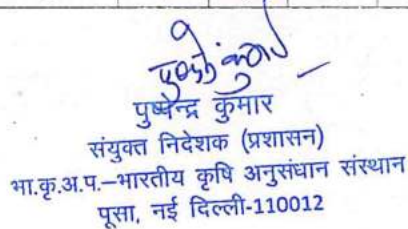 पुष्पेन्द्र कुमार
संयुक्त निदेशक (प्रशासन)
भा.कृ.अ.प.–भारतीय कृषि अनुसंधान संस्थान
पूसा, नई दिल्ली-110012